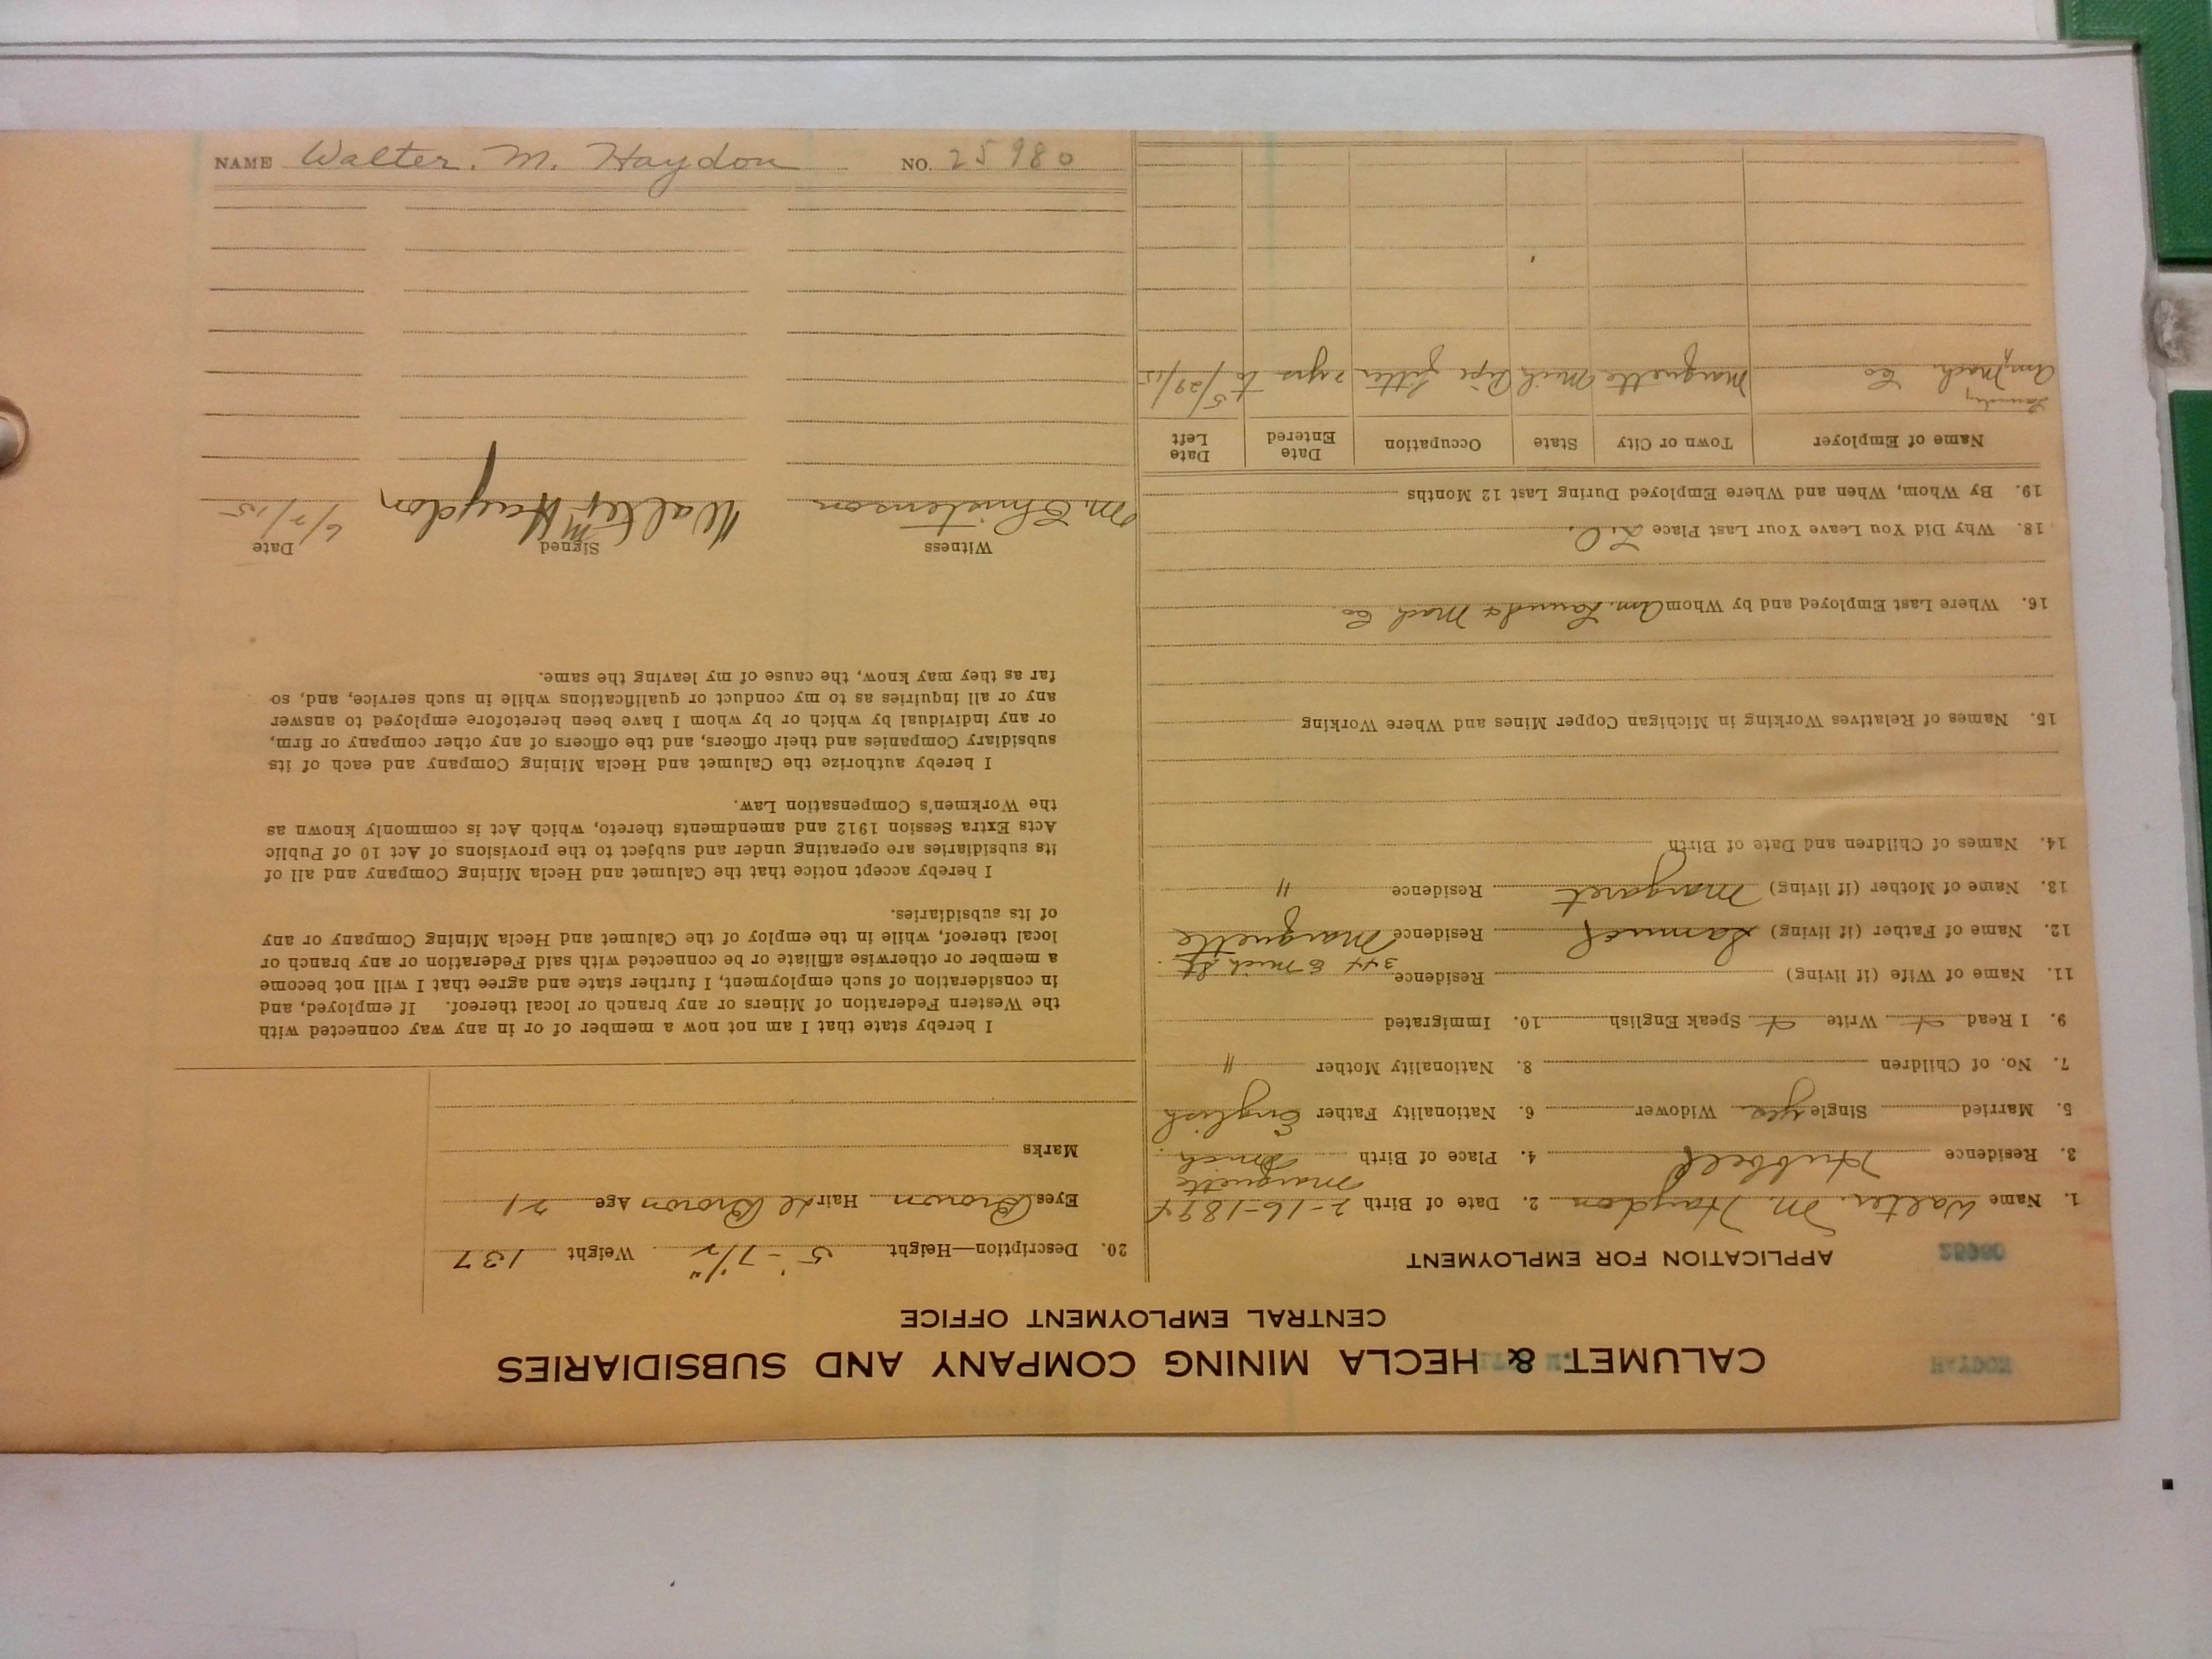 NAME Walter. M. Haydon NO. 25980
HAYDON
CALUMET & HECLA MINING COMPANY AND SUBSIDIARIES
CENTRAL EMPLOYMENT OFFICE
25980
APPLICATION FOR EMPLOYMENT
1. Name Walter. M. Haydon 2. Date of Birth 2-16-1894
3. Residence Hubbell 4. Place of Birth Marquette Mich
5. Married Single yes Widower 6. Nationality Father English
7. No. of Children 8. Nationality Mother "
9. I Read Write Speak English 10. Immigrated
11. Name of Wife (if living) Residence 344 E Mich St.
12. Name of Father (if living) Samuel Residence Marquette
13. Name of Mother (if living) Margaret Residence "
14. Names of Children and Date of Birth
15. Names of Relatives Working in Michigan Copper Mines and Where Working
16. Where Last Employed and by Whom Am. Laund & Mach Co
18. Why Did You Leave Your Last Place L.O.
19. By Whom, When and Where Employed During Last 12 Months
Name of Employer Town or City State Occupation Date Entered Date Left
Laundry
Am. Mach. Co Marquette Mich Pipe fitter 2 yrs to 5/29/15
20. Description—Height 5'-7 1/2" Weight 137
Eyes Brown Hair Brown Age 21
Marks
I hereby state that I am not now a member of or in any way connected with
the Western Federation of Miners or any branch or local thereof. If employed, and
in consideration of such employment, I further state and agree that I will not become
a member or otherwise affiliate or be connected with said Federation or any branch or
local thereof, while in the employ of the Calumet and Hecla Mining Company or any
of its subsidiaries.
I hereby accept notice that the Calumet and Hecla Mining Company and all of
its subsidiaries are operating under and subject to the provisions of Act 10 of Public
Acts Extra Session 1912 and amendments thereto, which Act is commonly known as
the Workmen's Compensation Law.
I hereby authorize the Calumet and Hecla Mining Company and each of its
subsidiary Companies and their officers, and the officers of any other company or firm,
or any individual by which or by whom I have been heretofore employed to answer
any or all inquiries as to my conduct or qualifications while in such service, and, so
far as they may know, the cause of my leaving the same.
Witness Signed Date
M. Christenson Walter M Haydon 6/2/15